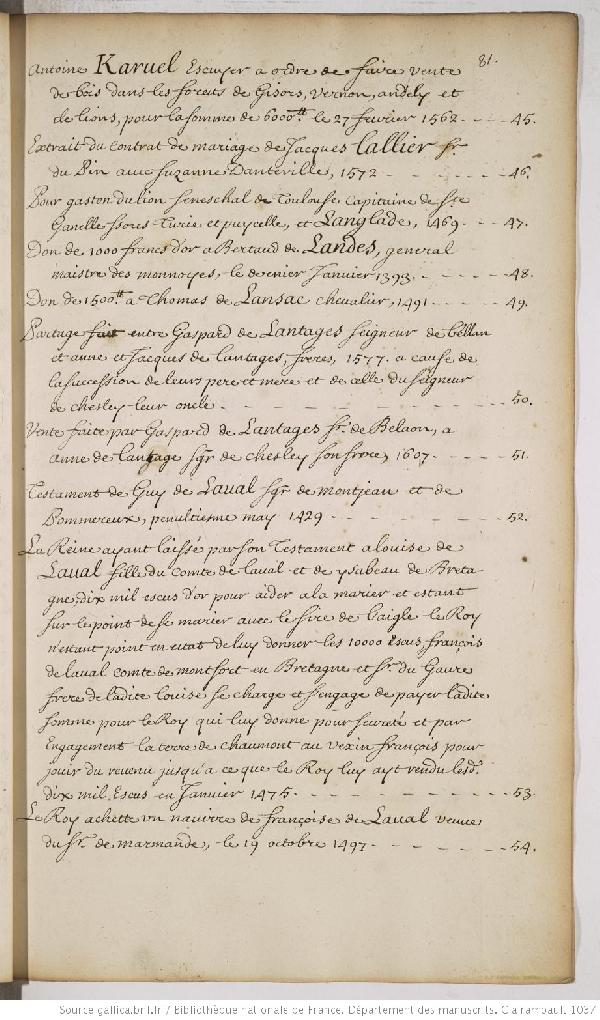 81.
Antoine Karuel Escuyer a ordre de faire vente
de bois dans les forests de Gisors, Vernon, andely et
de lions, pour la somme de 6000tt le 27 fevrier 1562. - - - 45.
Extrait du Contrat de mariage de Jacques Lallier sr.
du Pin avec Suzanne Danteville, 1572 - - - - - - 46.
Pour gaston du lion seneschal de Toulouse Capitaine de Ste
Gavelle et puycelle, et Langlade, 1469 - - - 47.
Don de 1000 francs d'or a Bertaud de Landes, general
maistre des monnoyes, le dernier Janvier 1393. - - - - - 48.
Don de 1500tt a Thomas de Lansac chevalier, 1491 - - - - - 49.
Partage fait entre Gaspard de Lantages seigneur de
et anne et Jacques de lantages, freres, 1577. a cause de
la succession de leurs pere et mere et de celle du seigneur
de chesley leur oncle - - - - - - - - 50.
Vente faite par Gaspard de Lantages sr. de Belaon, a
anne de lantage sgr. de chesley son frere, 1607 - - - - 51.
Testament de Guy de Laval sgr. de montjean et de
Pommereux, penultiesme may 1429 - - - - - - 52.
La Reine ayant laissé par son Testament a louise de
Laval fille du comte de laval et de ysabeau de Breta-
gne, dix mil escus d'or pour aider a la marier et estant
sur le point de se marier avec le sire de l'aigle le Roy
n'estant point en estat de luy donner les 10000 escus françois
de laval comte de montfort en Bretagne et sr. du Gavre
frere de ladite louise se charge et s'engage de payer ladite
somme pour le Roy qui luy donne pour seureté et par
Engagement la terre de chaumont au vexin françois pour
jouir du revenu jusqu'a ce que le Roy luy ayt rendu lesd.
dix mil Escus en Janvier 1475 - - - - - - - 53.
Le Roy achette un navire de françoise de Laval veuve
du sr. de marmande, le 19 octobre 1497 - - - - - - 54.
Source gallica.bnf.fr / Bibliothèque nationale de France. Département des manuscrits. Clairambault 1037